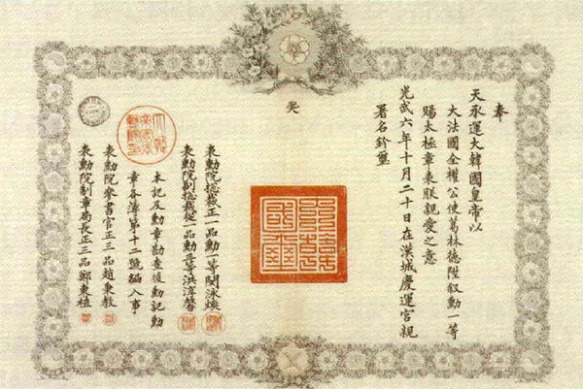 奉
天承運大韓國皇帝以
大法國全權公使葛林德陞叙勳一等
賜太極章表朕親愛之意
光武六年十月二十日在漢城慶運宮親
署名鈐璽
表勳院總裁正一品勳一等閔泳煥
表勳院副總裁從一品勳三等洪淳馨
本記及勳章勘查後勳記勳
章各簿第十二號編入事
表勳院參書官正三品趙秉敎
表勳院制章局長正三品鄭東植